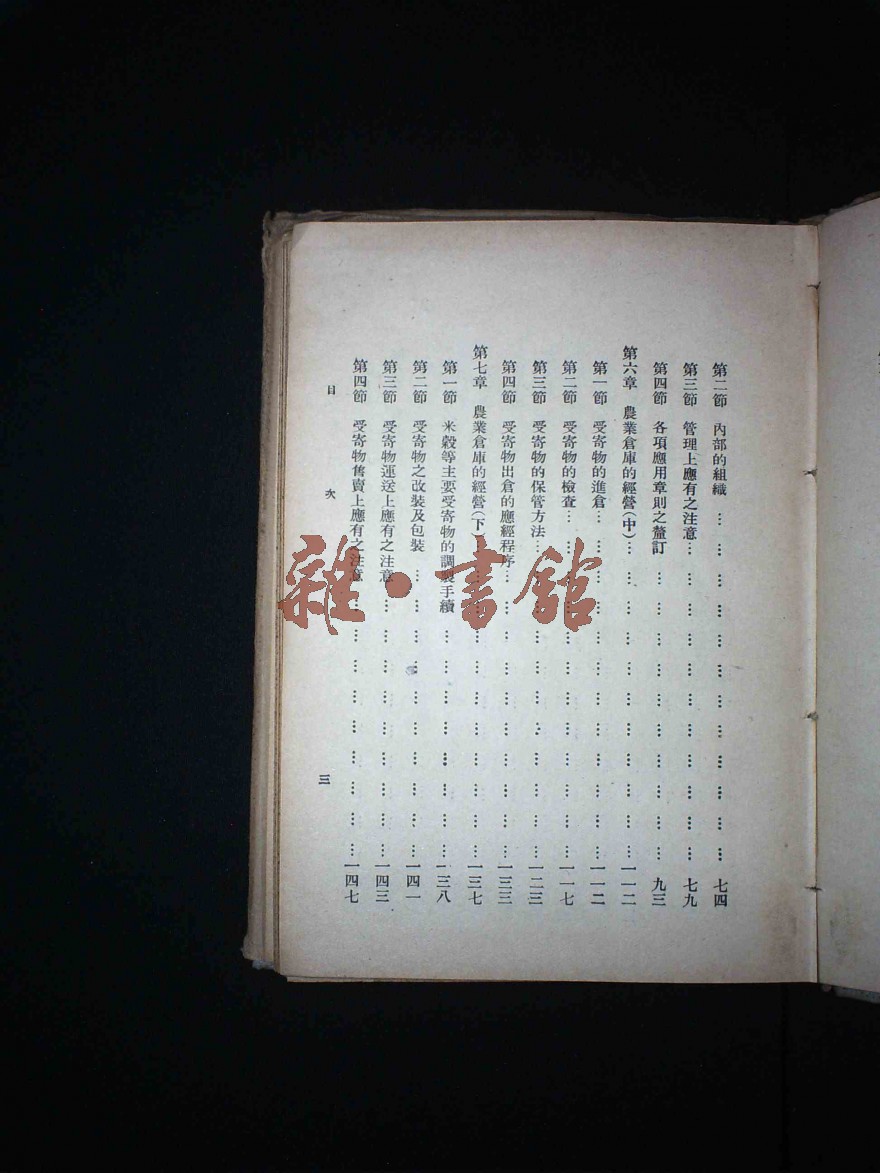 第二節　內部的組織………………七四
第三節　管理上應有之注意………………七九
第四節　各項應用章則之釐訂………………九三
第六章　農業倉庫的經營(中)………………一一二
第一節　受寄物的進倉………………一一二
第二節　受寄物的檢查………………一一七
第三節　受寄物的保管方法………………一二三
第四節　受寄物出倉的應經程序………………一三三
第七章　農業倉庫的經營(下)………………一三七
第一節　米穀等主要受寄物的調製手續………………一三八
第二節　受寄物之改裝及包裝………………一四一
第三節　受寄物運送上應有之注意………………一四三
第四節　受寄物售賣上應有之注意………………一四七
目　次　三
雜·書館